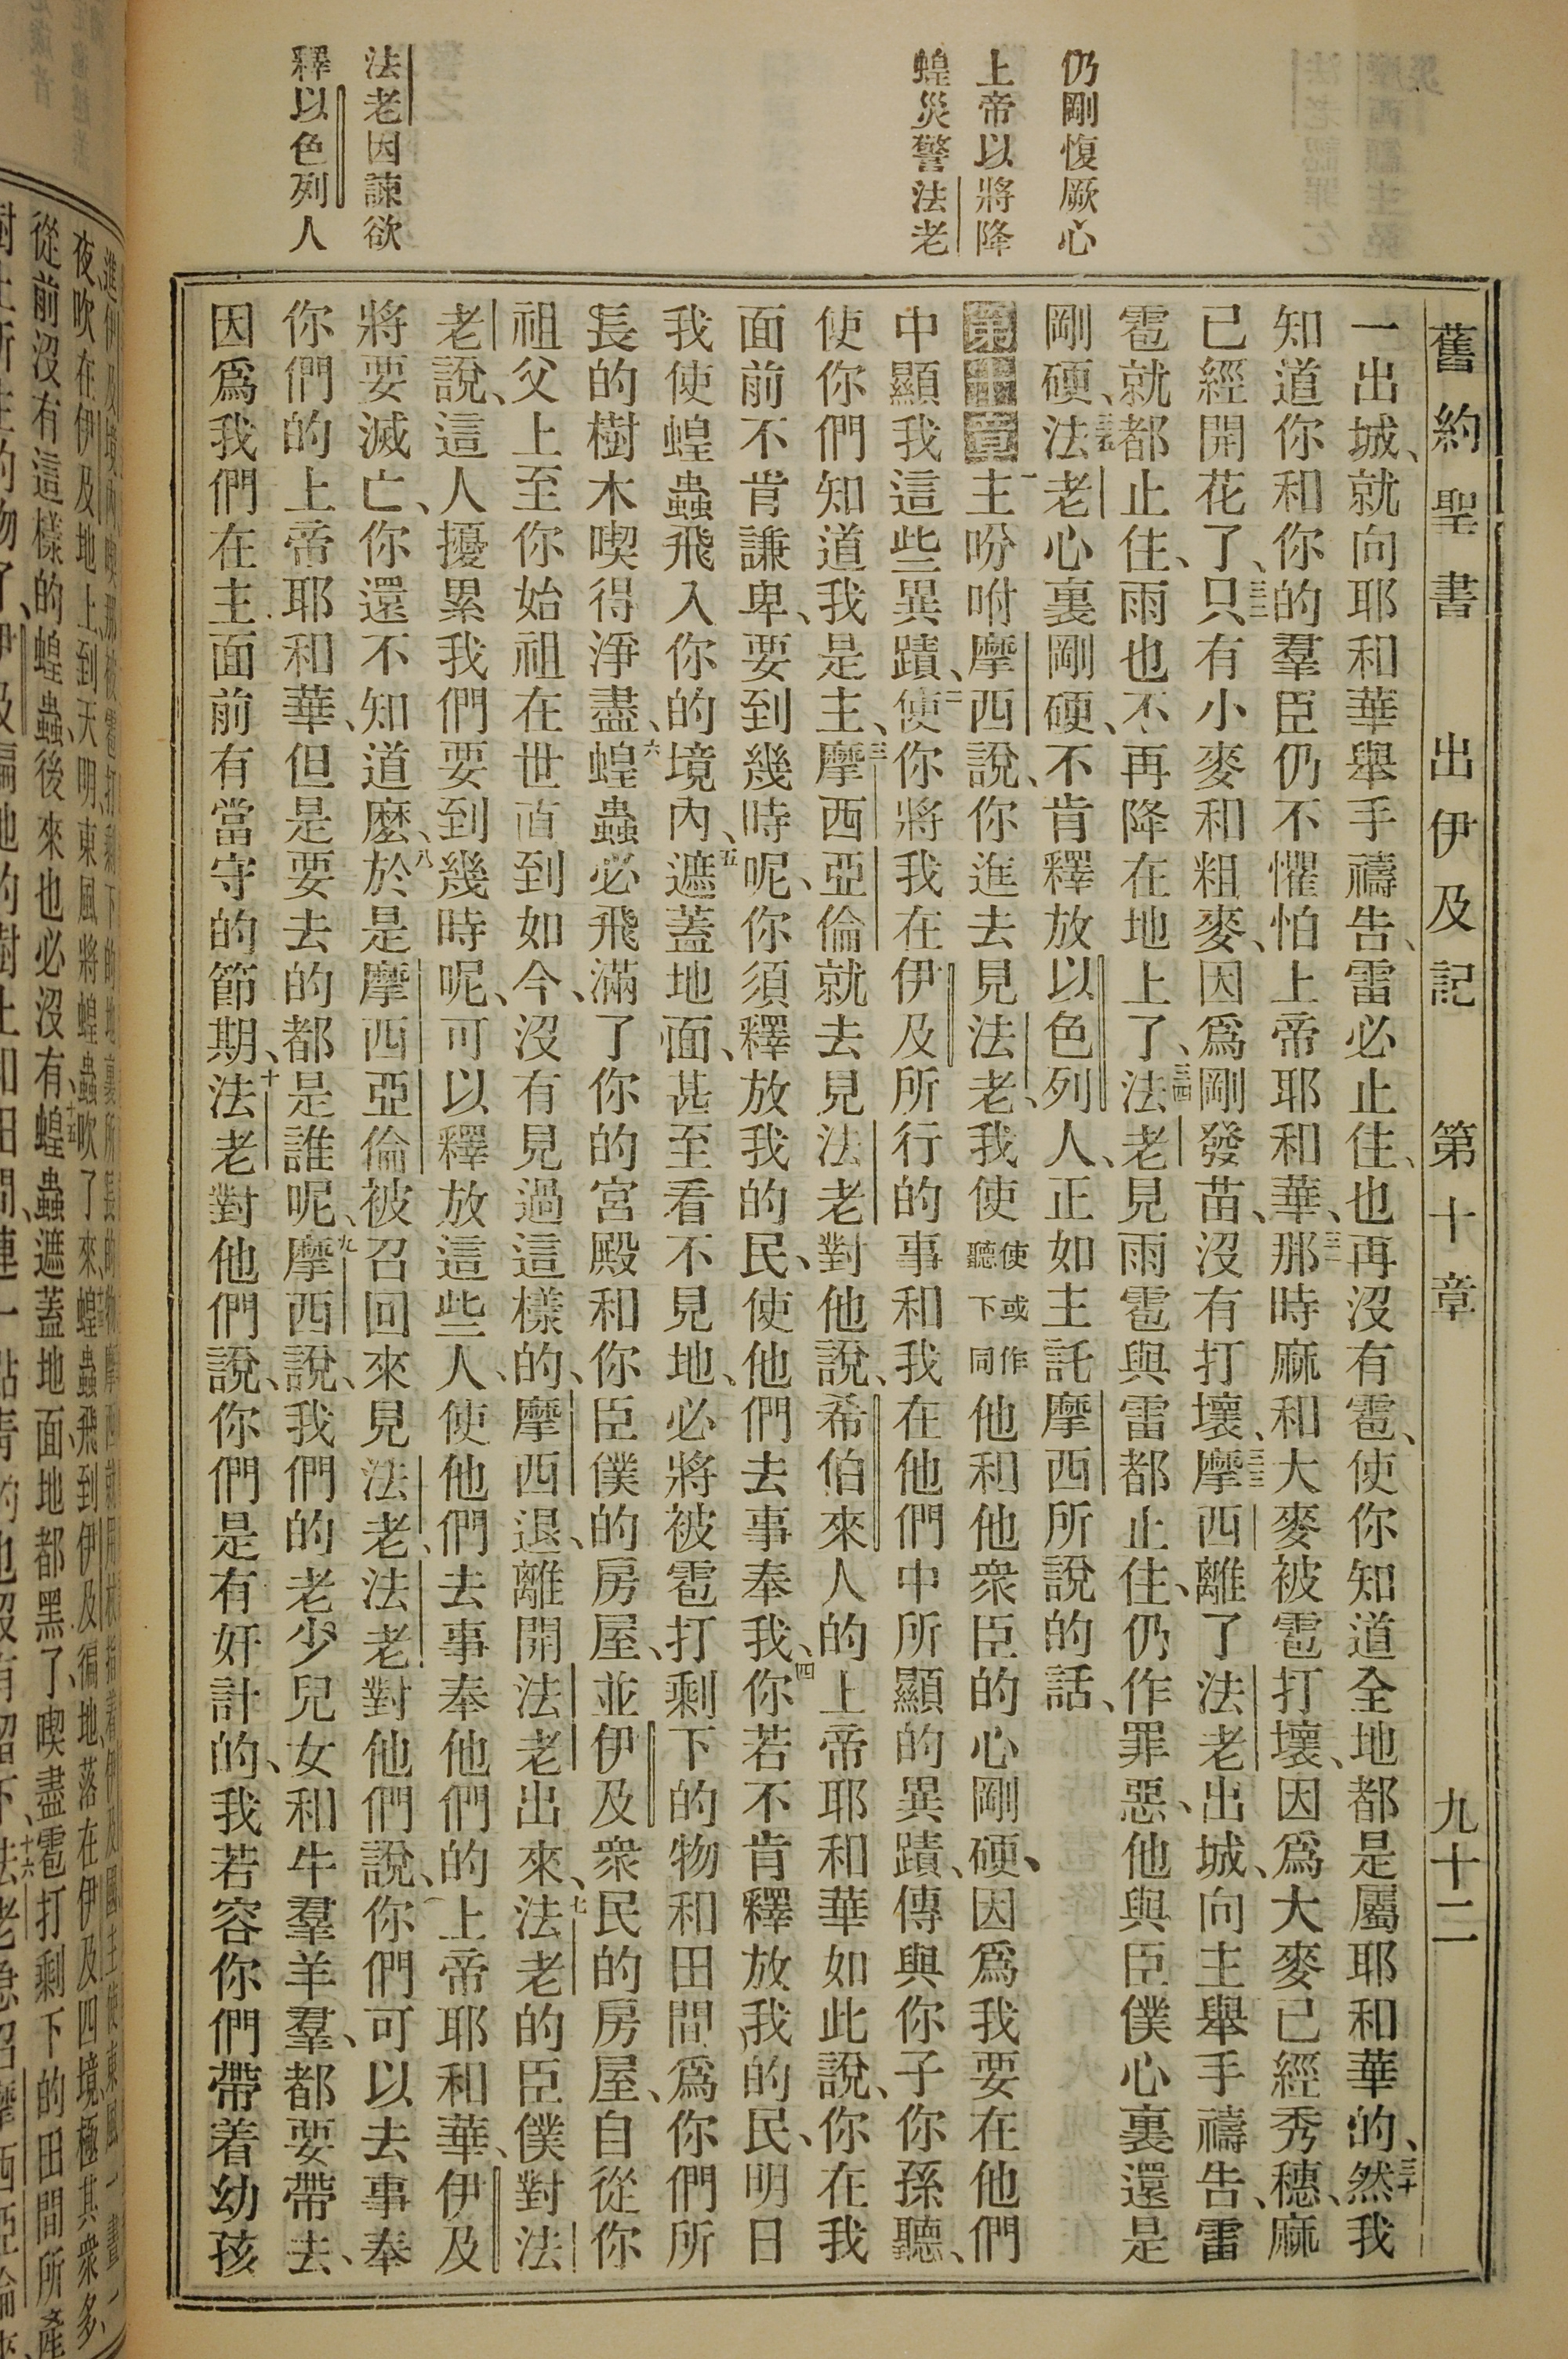 舊約聖書 出伊及記 第十章 九十二
仍剛愎厥心
上帝以將降
蝗災警法老
法老因諫欲
釋以色列人
一出城、就向耶和華舉手禱告、雷必止住、也再沒有雹、使你知道全地都是屬耶和華的、三十然我
知道你和你的羣臣仍不懼怕上帝耶和華、三一那時麻和大麥被雹打壞、因爲大麥已經秀穗、麻
已經開花了、三二只有小麥和粗麥、因爲剛發苗、沒有打壞、三三摩西離了法老出城、向主舉手禱告、雷
雹就都止住、雨也不再降在地上了、三四法老見雨雹與雷都止住、仍作罪惡、他與臣僕心裏還是
剛硬、三五法老心裏剛硬、不肯釋放以色列人、正如主託摩西所說的話、
第十章 一主吩咐摩西說、你進去見法老、我使使或作聽下同他和他衆臣的心剛硬、因爲我要在他們
中顯我這些異蹟、二使你將我在伊及所行的事和我在他們中所顯的異蹟、傳與你子你孫聽、
使你們知道我是主、三摩西亞倫就去見法老對他說、希伯來人的上帝耶和華如此說、你在我
面前不肯謙卑、要到幾時呢、你須釋放我的民、使他們去事奉我、四你若不肯釋放我的民、明日
我使蝗蟲飛入你的境內、五遮蓋地面、甚至看不見地、必將被雹打剩下的物和田間、爲你們所
長的樹木喫得淨盡、六蝗蟲必飛滿了你的宮殿和你臣僕的房屋、並伊及衆民的房屋、自從你
祖父上至你始祖在世直到如今、沒有見過這樣的、摩西退、離開法老出來、七法老的臣僕對法
老說、這人擾累我們要到幾時呢、可以釋放這些人、使他們去事奉他們的上帝耶和華、伊及
將要滅亡、你還不知道麼、八於是摩西亞倫被召回來見法老、法老對他們說、你們可以去事奉
你們的上帝耶和華、但是要去的都是誰呢、九摩西說、我們的老少兒女和牛羣羊羣、都要帶去、
因爲我們在主面前有當守的節期、十法老對他們說、你們是有奸計的、我若容你們帶着幼孩
夜、吹在伊及地上、到天明、東風將蝗蟲吹了來、蝗蟲飛到伊及徧地、落在伊及四境、極其衆多、
從前沒有這樣的蝗蟲、後來也必沒有、十五蝗蟲遮蓋地面、地都黑了、喫盡雹打剩下的田間所產